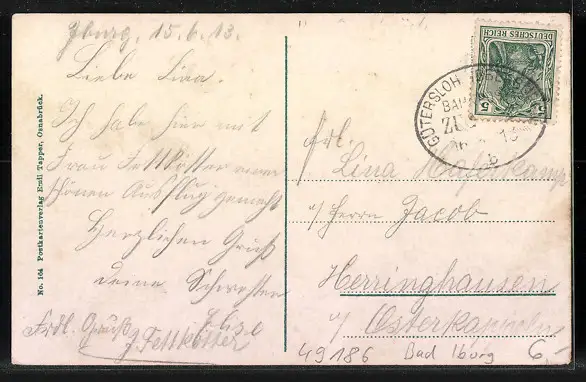 Iburg, 15.6.13.
Liebe Lina.
Ich habe hier mit
Frau Fettkötter einen
schönen Ausflug gemacht
Herzlichen Gruß
deine Schwester
Elise
Frdl. Gruß
J. Fettkötter
No. 104 Postkartenverlag Emil Tepper, Osnabrück.
DEUTSCHES REICH
5
GÜTERSLOH
BAD
ZUG
16
13
b
Frl.
Lina Haferkamp
p/ Herrn Jacob
Herringhausen
p/ Osterkappeln
49186 Bad Iburg 6,-